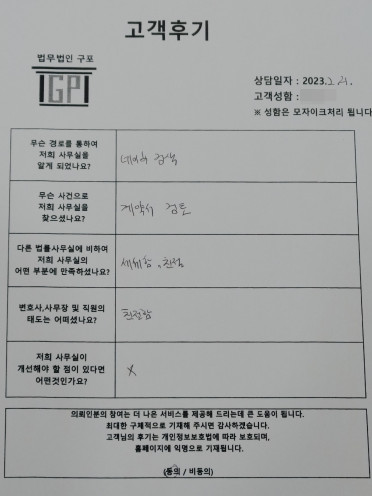 고객후기
법무법인 구포
GP
상담일자 : 2023. 2. 21.
고객성함 :
※ 성함은 모자이크처리 됩니다
무슨 경로를 통하여
저희 사무실을
알게 되었나요?
네이버 검색
무슨 사건으로
저희 사무실을
찾으셨나요?
계약서 검토
다른 법률사무실에 비하여
저희 사무실의
어떤 부분에 만족하셨나요?
세세함, 친절
변호사,사무장 및 직원의
태도는 어떠셨나요?
친절함
저희 사무실이
개선해야 할 점이 있다면
어떤것인가요?
X
의뢰인분의 참여는 더 나은 서비스를 제공해 드리는데 큰 도움이 됩니다.
최대한 구체적으로 기재해 주시면 감사하겠습니다.
고객님의 후기는 개인정보보호법에 따라 보호되며,
홈페이지에 익명으로 기재됩니다.
(동의 / 비동의)